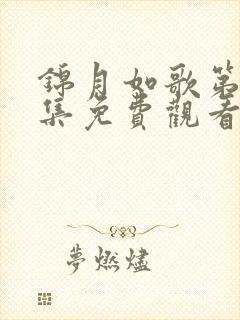 錦月如歌第
集免費觀看
夢燃燼